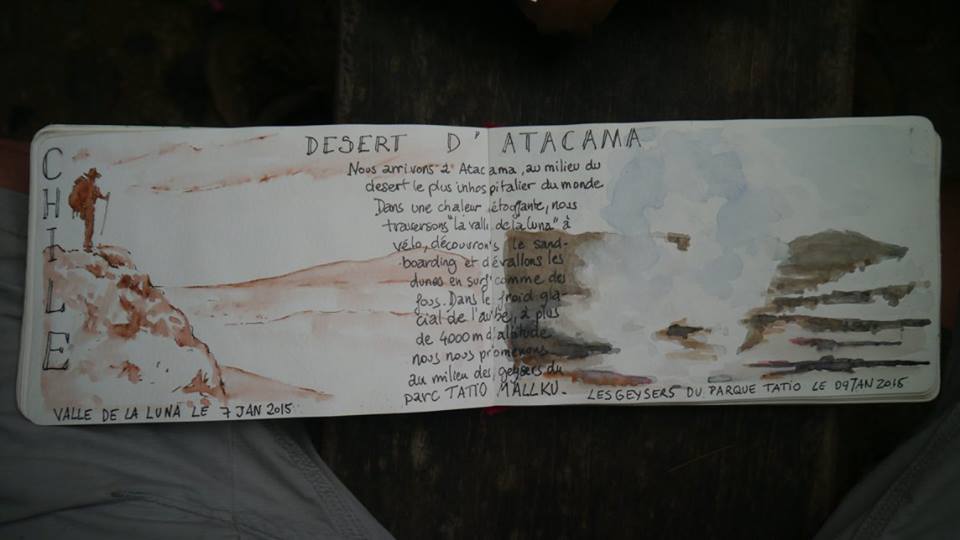 CHILE
DESERT D'ATACAMA
Nous arrivons à Atacama, au milieu du
desert le plus inhospitalier du monde
Dans une chaleur étouffante, nous
traversons "la valle de la luna" à
vélo, découvrons le sand-
boarding et dévallons les
dunes en surf comme des
fous. Dans le froid gla-
cial de l'aube, à plus
de 4000m d'altitude
nous nous promenons
au milieu des geysers du
parc TATIO MALLKU.
VALLE DE LA LUNA LE 7 JAN 2015
LES GEYSERS DU PARQUE TATIO LE 09 JAN 2015